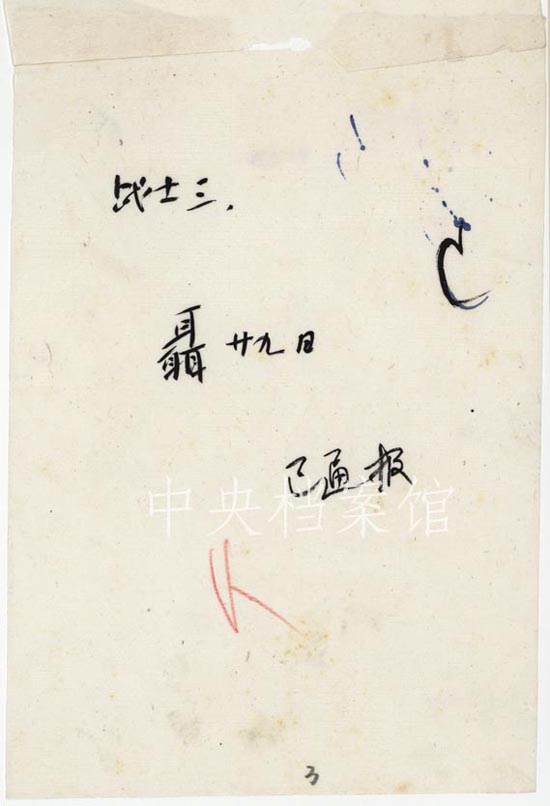 战士三，
聶 廿九日
已通报
中央档案馆
3